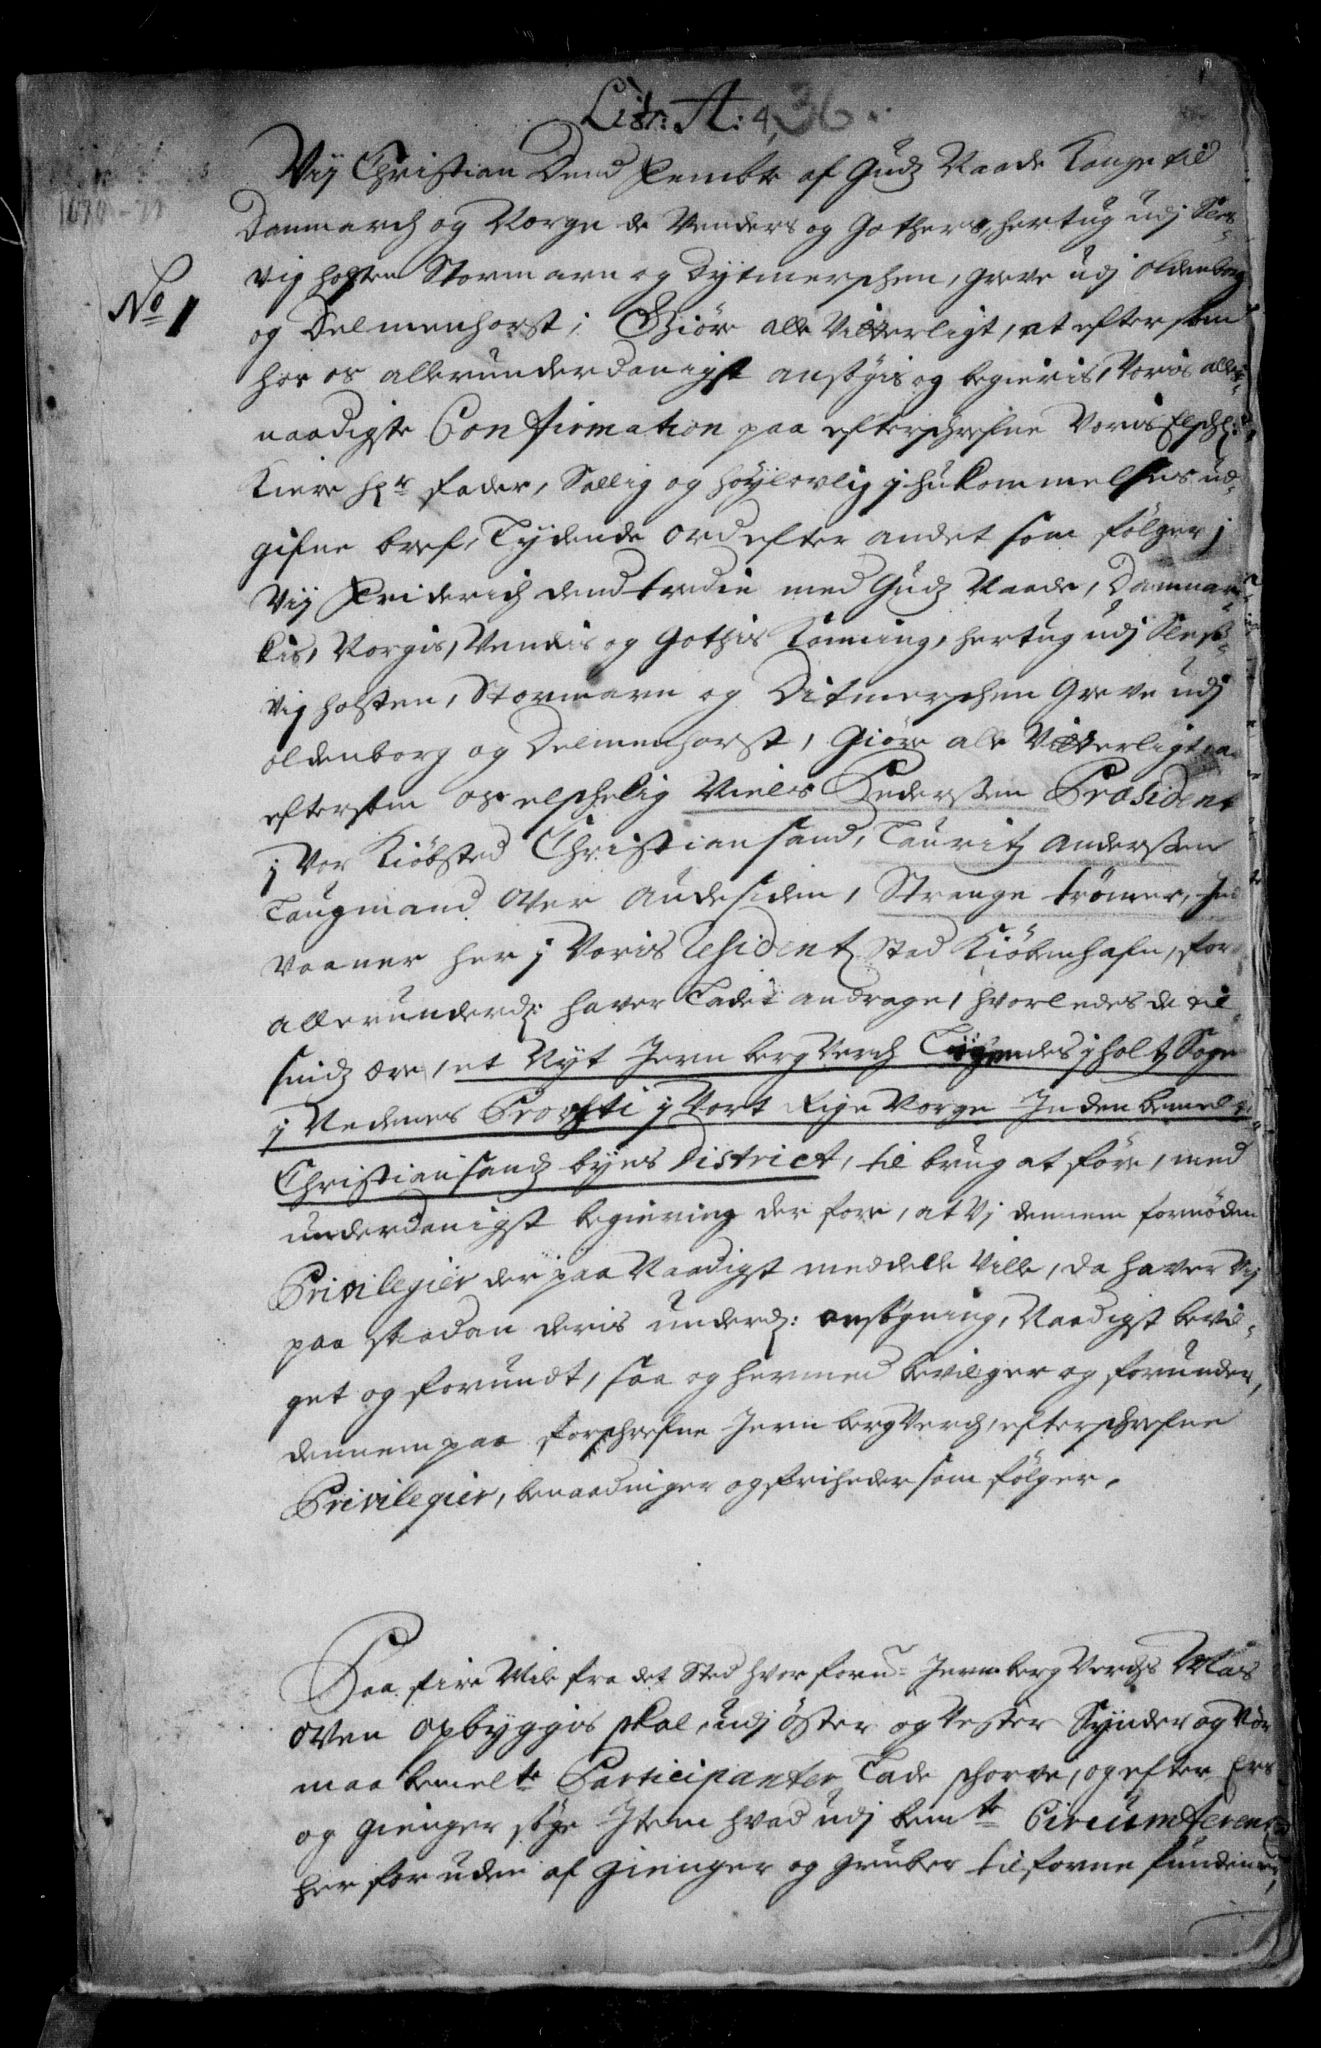 Litr: A: 4, 36.
1670-71
No 1
Vij Christian Dend Femte af Gudz Naade Konge til
Danmarch og Norge de Venders og Gothers, hertug udj Sles-
vig holsten Stormarn og Dytmerschen, greve udj oldenborg
og Delmenhorst; Giöre alle Vitterligt, at eftersom
hos os allerunderdanigst ansögis og begieris, Voris aller-
naadigste Confirmation paa efterschrefne Voris Elschl:
Kiere Hr Fader, Sallig og höylovlig jhukommelsis ud-
gifne bref, Lydende ord efter andet som fölger;
Vij Friderich dend tredie med Gudz Naade, Danmar-
kis, Norgis, Vendis og Gothis Konning, hertug udj Sleß-
vig holsten, Stormarn og Ditmerschen Greve udj
oldenborg og Delmenhorst, Giöre alle Vitterligt
eftersom os elschelig Niels Pedersen Præsident
j Vor Kiöbsted Christiansand, Lauritz Andersen
Laugmand over Andesiden, Strange trömer, Ind
vaaner her j Voris Residentz Stad Kiöbenhafn, for
allerunderd: haver Ladet andrage, hvorledes de til-
sindz ere, et Nyt Jern bergVerch Liggendes j holtz Sogn
j Nedenes Profsti j Vort Rige Norge Inden bemelte
Christiansandz byes District, til brug at före, med
underdanigst begiering der fore, at Vj dennem fornöden
Privilegier der paa Naadigst meddelle Ville, da haver Vij
paa saadan deris underd: ansögning, Naadigst bevil-
get og forundt, saa og hermed bevilger og forunder,
dennem paa forschrefne Jern bergVerch, efterschrefne
Privilegier, benaadninger og friheder som fölger.
Paa fire Mile fra det Sted hvor forn- Jernberg Verchs Mas
oven opbyggis skal, udj öster og Vester Synder og Nör
maa bemelte Participanter Lade schorve, og efter Ers
og gienger söge Item hvad udj bemte Circumferens
her for uden af gienger og gruber tilforne funden er,